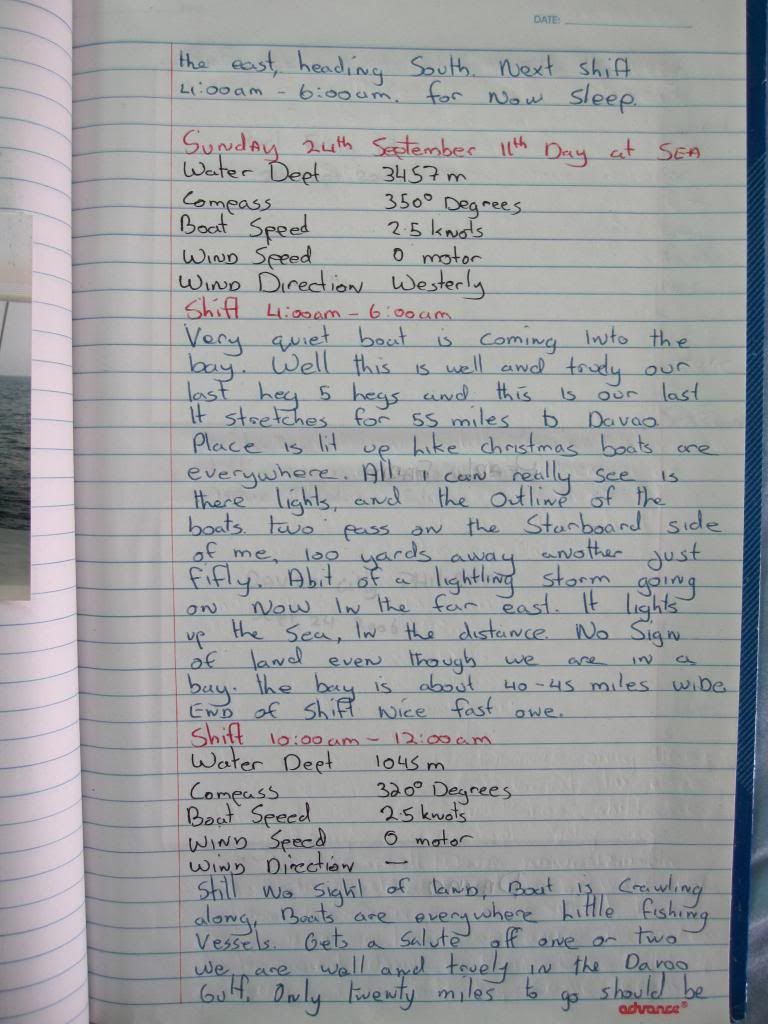 DATE:
the east, heading South. Next shift
4:00am - 6:00am. for Now Sleep.
Sunday 24th September 11th Day at SEA
Water Dept 3457 m
Compass 350° Degrees
Boat Speed 2.5 knots
Wind Speed 0 motor
Wind Direction Westerly
Shift 4:00am - 6:00am
Very quiet boat is coming into the
bay. Well this is well and truly our
last leg 5 legs and this is our last
It stretches for 55 miles to Davao
Place is lit up like christmas boats are
everywhere. All i can really see is
there lights, and the Outline of the
boats. two pass on the Starboard side
of me, 100 yards away another just
fifly. Abit of a lightling storm going
on Now In the far east. It lights
up the Sea, In the distance. No Sign
of land even though we are in a
bay. the bay is about 40-45 miles wide
End of Shift Nice fast one.
Shift 10:00am - 12:00am
Water Dept 1045 m
Compass 320° Degrees
Boat Speed 2.5 knots
Wind Speed 0 motor
Wind Direction —
Still No Sight of land, Boat is Crawling
along, Boats are everywhere little fishing
Vessels. Gets a Salute off one or two
We are well and truely in the Davao
Gulf. Only twenty miles to go should be
advance®